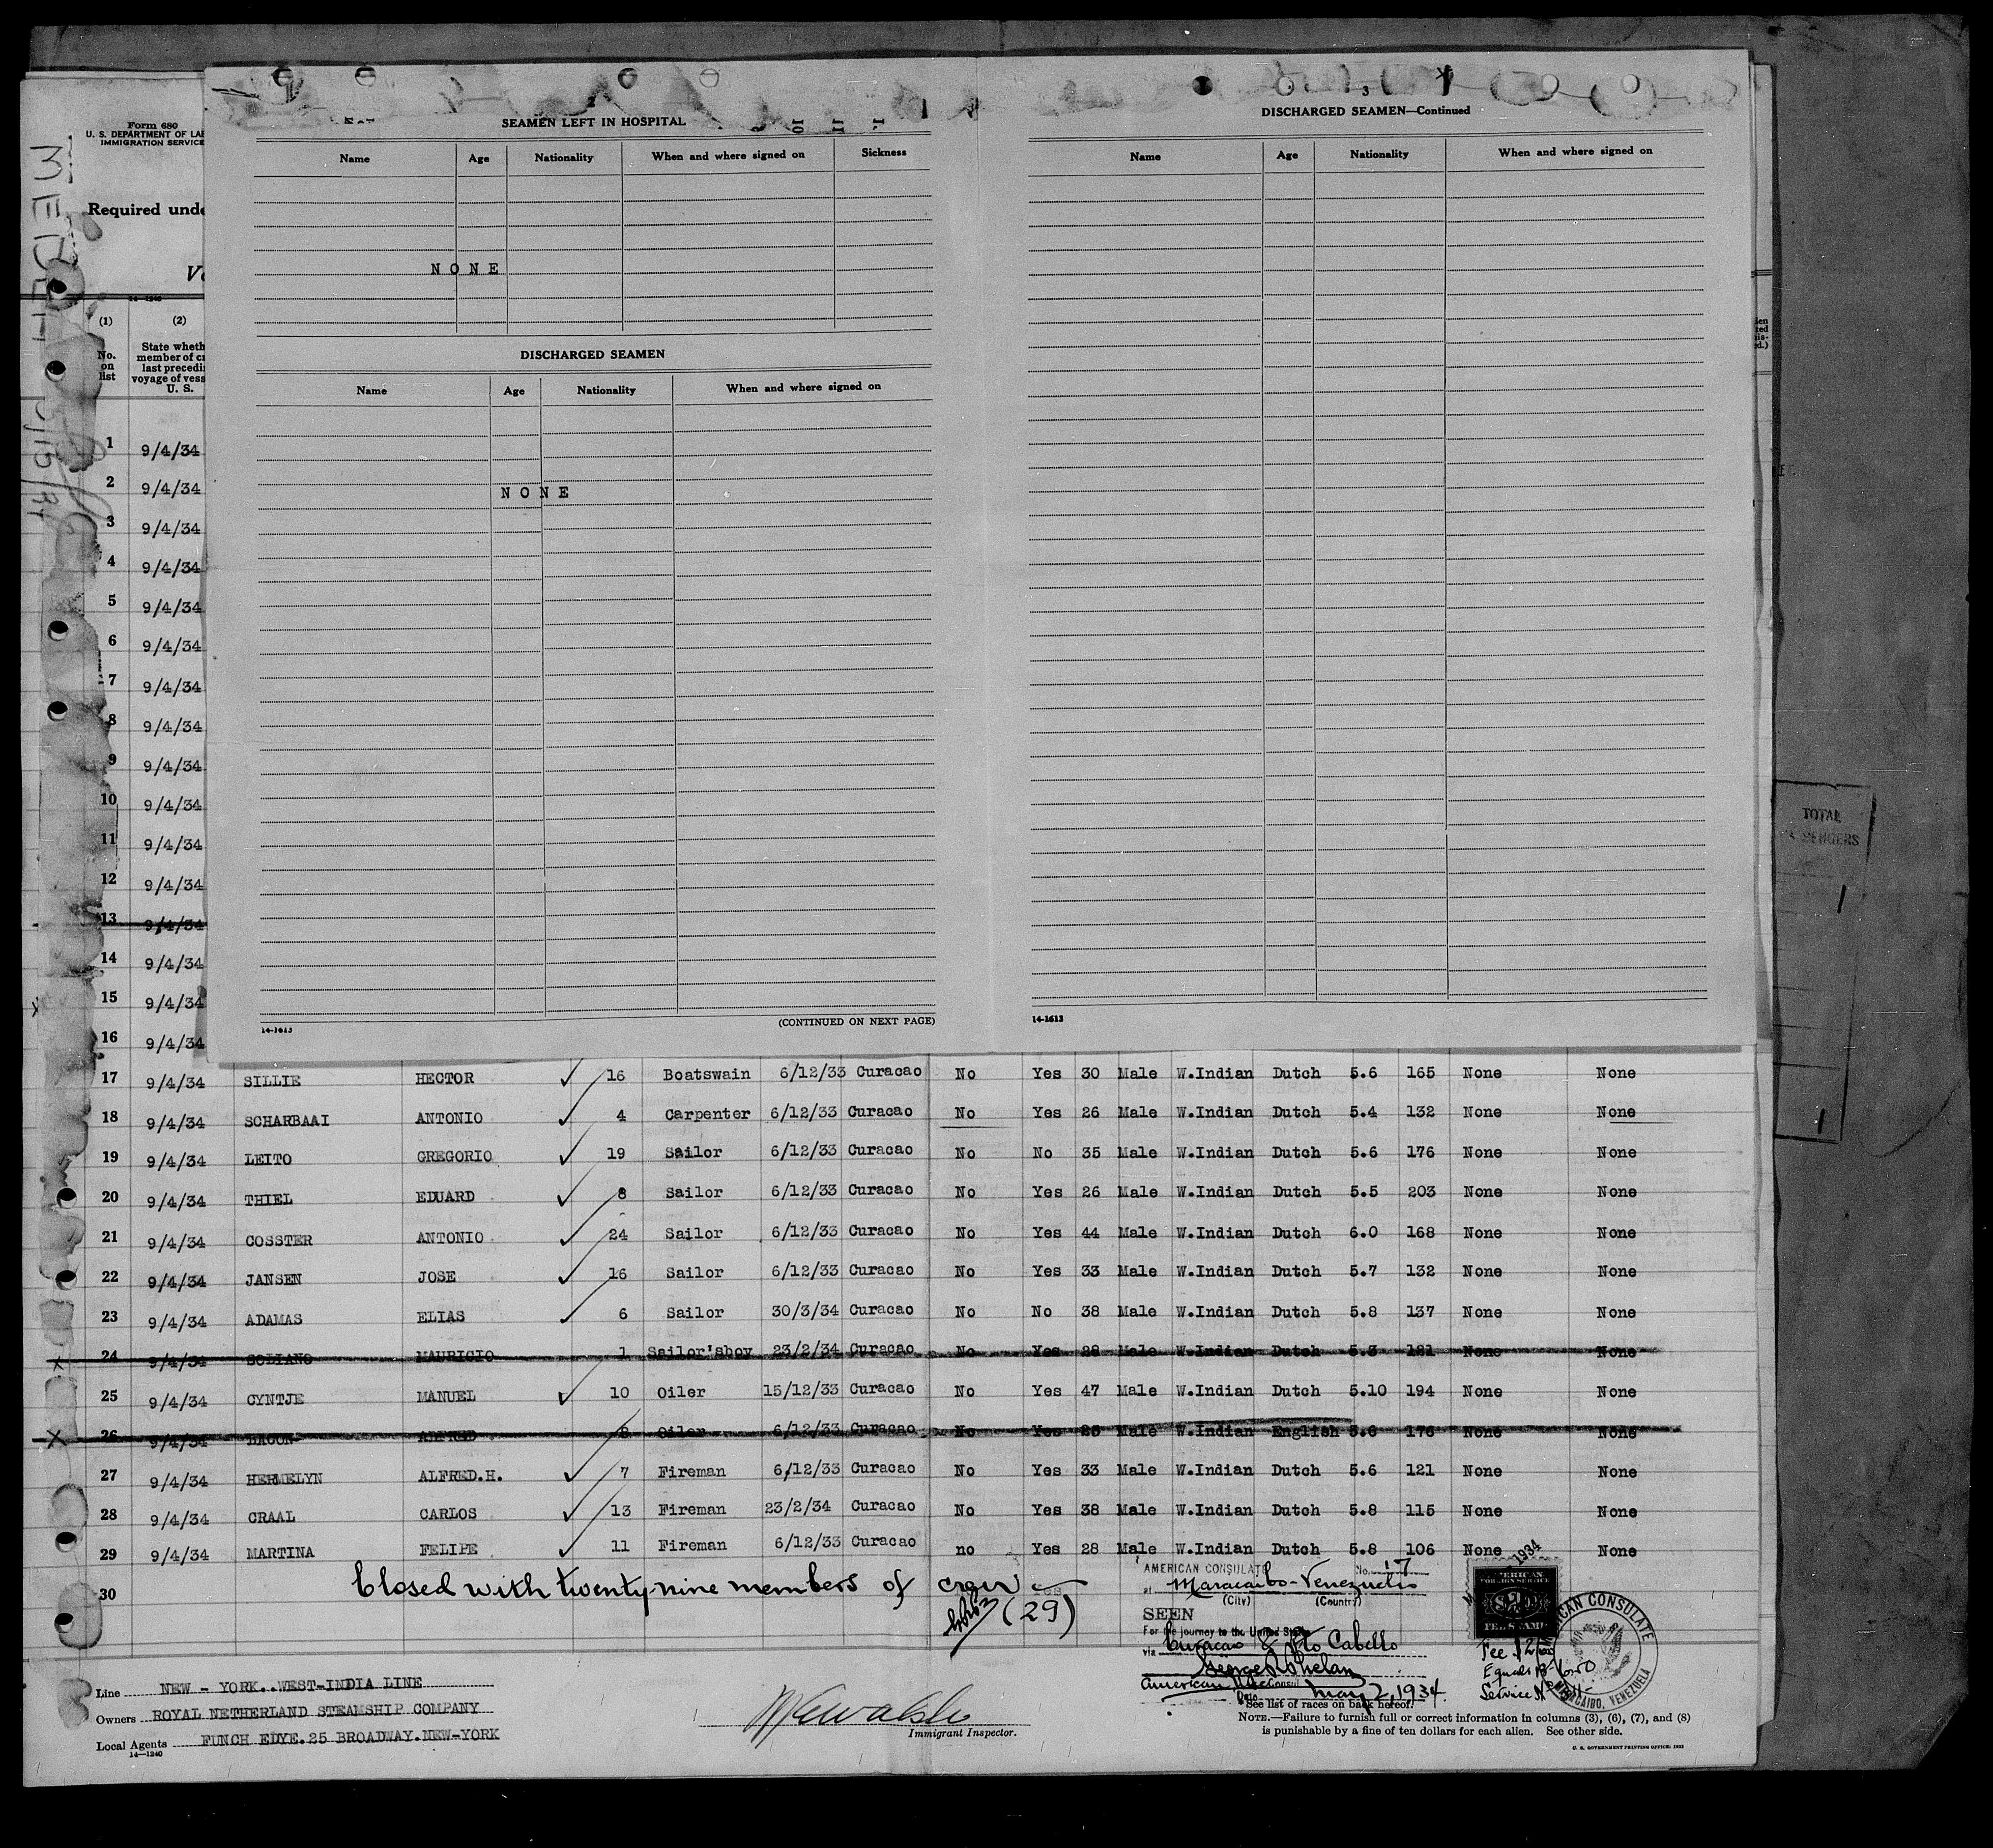 Form 680
U. S. DEPARTMENT OF LAB
IMMIGRATION SERVICE
Required unde
14-1240
(1) (2)
No. on list
State wheth
member of cr
last precedi
voyage of vess
U. S.
2
SEAMEN LEFT IN HOSPITAL
Name Age Nationality When and where signed on Sickness
NONE
DISCHARGED SEAMEN
Name Age Nationality When and where signed on
NONE
14-1613 (CONTINUED ON NEXT PAGE)
3
DISCHARGED SEAMEN—Continued
Name Age Nationality When and where signed on
14-1613
TOTAL
1
1
1 9/4/34
2 9/4/34
3 9/4/34
4 9/4/34
5 9/4/34
6 9/4/34
7 9/4/34
8 9/4/34
9 9/4/34
10 9/4/34
11 9/4/34
12 9/4/34
13 9/4/34
14 9/4/34
15 9/4/34
16 9/4/34
17 9/4/34 SILLIE HECTOR 16 Boatswain 6/12/33 Curacao No Yes 30 Male W.Indian Dutch 5.6 165 None None
18 9/4/34 SCHARBAAI ANTONIO 4 Carpenter 6/12/33 Curacao No Yes 26 Male W.Indian Dutch 5.4 132 None None
19 9/4/34 LEITO GREGORIO 19 Sailor 6/12/33 Curacao No No 35 Male W.Indian Dutch 5.6 176 None None
20 9/4/34 THIEL EDUARD 8 Sailor 6/12/33 Curacao No Yes 26 Male W.Indian Dutch 5.5 203 None None
21 9/4/34 COSSTER ANTONIO 24 Sailor 6/12/33 Curacao No Yes 44 Male W.Indian Dutch 6.0 168 None None
22 9/4/34 JANSEN JOSE 16 Sailor 6/12/33 Curacao No Yes 33 Male W.Indian Dutch 5.7 132 None None
23 9/4/34 ADAMAS ELIAS 6 Sailor 30/3/34 Curacao No No 38 Male W.Indian Dutch 5.8 137 None None
24 9/4/34 SOLIANO MAURICIO 1 Sailor'sboy 23/2/34 Curacao No Yes 28 Male W.Indian Dutch 5.3 121 None None
25 9/4/34 CYNTJE MANUEL 10 Oiler 15/12/33 Curacao No Yes 47 Male W.Indian Dutch 5.10 194 None None
26 9/4/34 ALFRED 8 Oiler 6/12/33 Curacao No Yes 25 Male W.Indian English 5.6 176 None None
27 9/4/34 HERMELYN ALFRED.H. 7 Fireman 6/12/33 Curacao No Yes 33 Male W.Indian Dutch 5.6 121 None None
28 9/4/34 CRAAL CARLOS 13 Fireman 23/2/34 Curacao No Yes 38 Male W.Indian Dutch 5.8 115 None None
29 9/4/34 MARTINA FELIPE 11 Fireman 6/12/33 Curacao no Yes 28 Male W.Indian Dutch 5.8 106 None None
30 Closed with twenty-nine members of crew
(29)
AMERICAN CONSULATE No. 17
at Maracaibo-Venezuela
(City) (Country)
SEEN
For the journey to the United States
via Curacao & Pto Cabello
George R Phelan
American Vice Consul
Date May 2, 1934
1934
AMERICAN CONSULATE
MARACAIBO, VENEZUELA
Line NEW - YORK..WEST-INDIA LINE
Owners ROYAL NETHERLAND STEAMSHIP COMPANY
Local Agents FUNCH EDYE.25 BROADWAY.NEW-YORK
14—1240
Immigrant Inspector.
See list of races on back hereof.
NOTE.—Failure to furnish full or correct information in columns (3), (6), (7), and (8)
is punishable by a fine of ten dollars for each alien. See other side.
U. S. GOVERNMENT PRINTING OFFICE: 1932